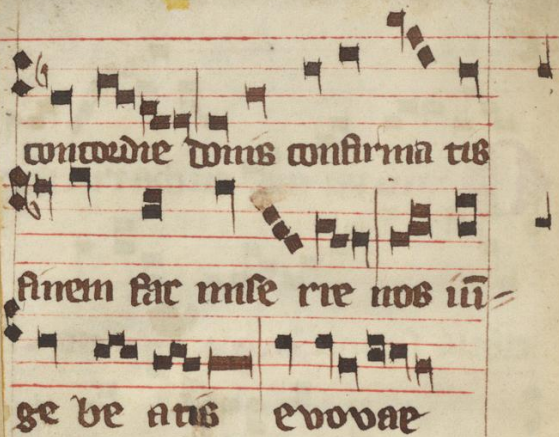 concordie donis confirma tis
finem fac mise rie nos iū-
ge be atis evovae